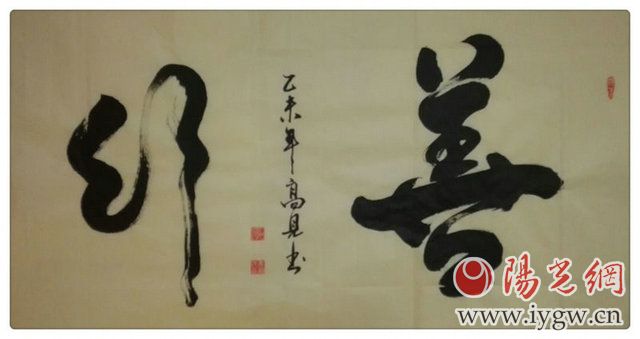 善
乙未年高見书
行
陽光網
www.iygw.cn